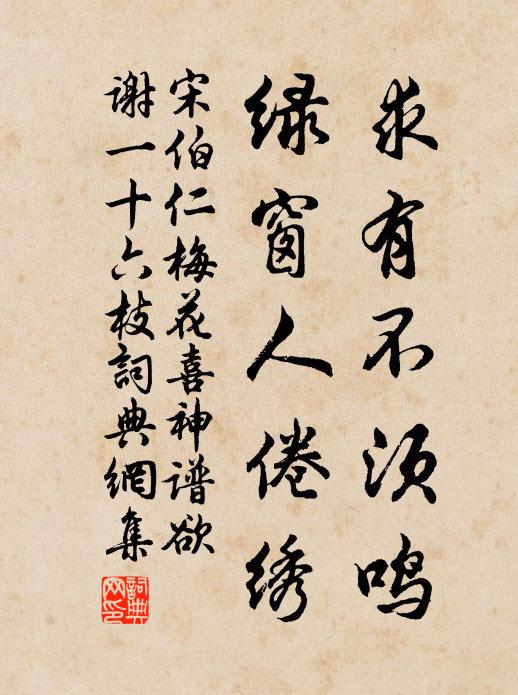 求有不须鸣
绿窗人倦绣
宋伯仁梅花喜神谱欲
谢一十六枝詞典網集
詞典网印